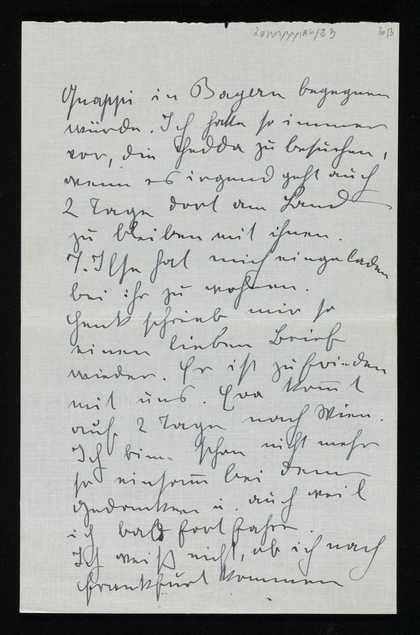 Quappi in Bayern begegnen
würde. Ich habe so immer
vor, die Hedda zu besuchen,
wenn es irgend geht auch
2 Tage dort am Land
zu bleiben mit ihnen.
T. Ilse hat mich eingeladen
bei ihr zu wohnen.
Henk schrieb mir so
einen lieben Brief
wieder. Er ist zufrieden
mit uns. Eva kommt
auf 2 Tage nach Wien.
Ich bin schon nicht mehr
so einsam bei dem
Gedanken u. auch weil
ich bald fortfahre.
Ich weiß nicht, ob ich nach
Frankfurt kommen